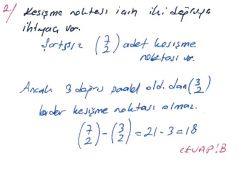 2/ Kesişme noktası için iki doğruya
ihtiyaç var.
Şartsız (7 2) adet kesişme
noktası var.
Ancak 3 doğru paralel old.dan (3 2)
kadar kesişme noktası olmaz.
(7 2) - (3 2) = 21 - 3 = 18
CEVAP: B